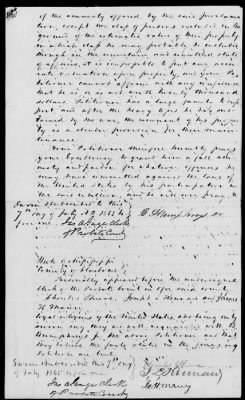 of the amnesty offered by the said proclama
tion, except the clap of persons excluded on the
ground of the estimated value of their property
in which clap he may probably be included
though in the unsettled and unsettled state
of affairs, it is impossible to put any accu
rate valuation upon property, and your Pe
titioner cannot affirm with any confidence
that he is or is not worth twenty thousand
dollars. Petitioner has a large family to sup
port and after the heavy loss he has sus
tained by the war, the remnant of his proper
ty is a slender provision for their main
tenance.
Your Petitioner therefore humbly prays
your Excellency to grant him a full am
nesty and pardon for whatever offences he
may have committed against the laws of
the United States by his participation in
the said rebellion, and he will ever pray &c
Sworn & subscribed to this
7th Day of July A.D. 1865 before me
Jas A Gage Clerk
of Probate Court
State of Mississippi
County of Claiborne
Personally appeared before the undersigned
Clerk of the Probate Court in & for said County
Joseph
legal citizens of the United States, who being duly
sworn say they are well acquainted with B.
Humphreys Sr the above petitioner and that
they believe the facts stated in the foregoing
Petition are true
Sworn & subscribed this 7th day
of July 1865 before me
Jas A Gage Clerk
of Probate Court